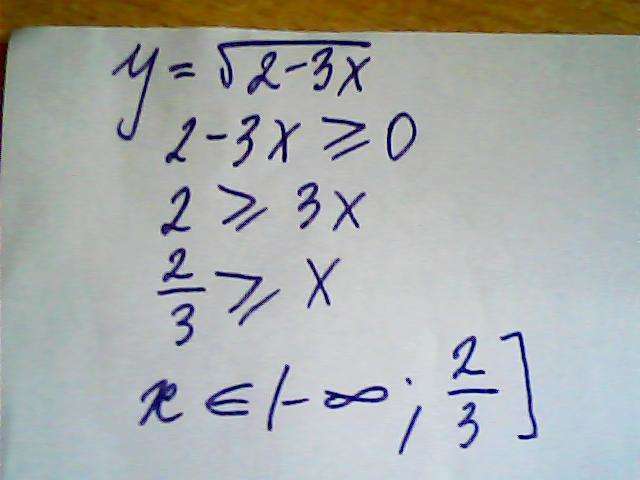 y = √(2-3x)
2-3x ⩾ 0
2 ⩾ 3x
2/3 ⩾ x
x ∈ (-∞; 2/3]